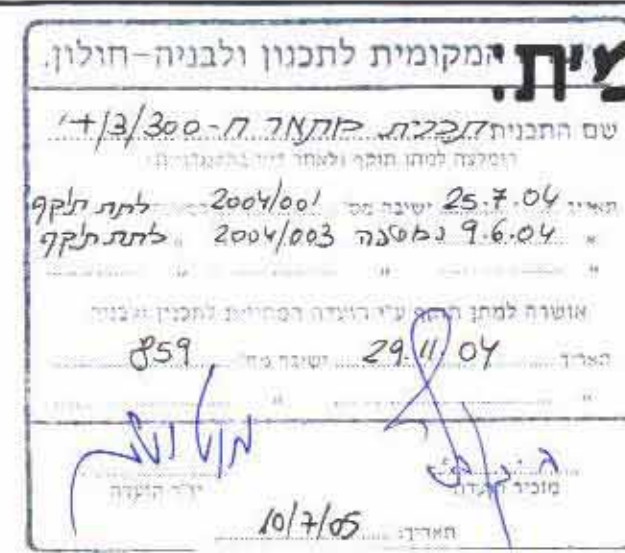 המקומית לתכנון ולבניה-חולון.
מית.
שם התכנית תכנית מתאר ח-300/3/+י
רומלצה למתן תוקף ולאחר דיון בהתנגדויות
תאריך 25.7.04 ישיבה מס' 2004/001 לתת תוקף
" 9.6.04 2004/003 " לתת תוקף
אושרה למתן תוקף ע"י הועדה המחוזית לתכנון ולבניה
תאריך 29.11.04 ישיבה מס' 859
יו"ר הועדה
מזכיר הועדה
תאריך: 10/7/05